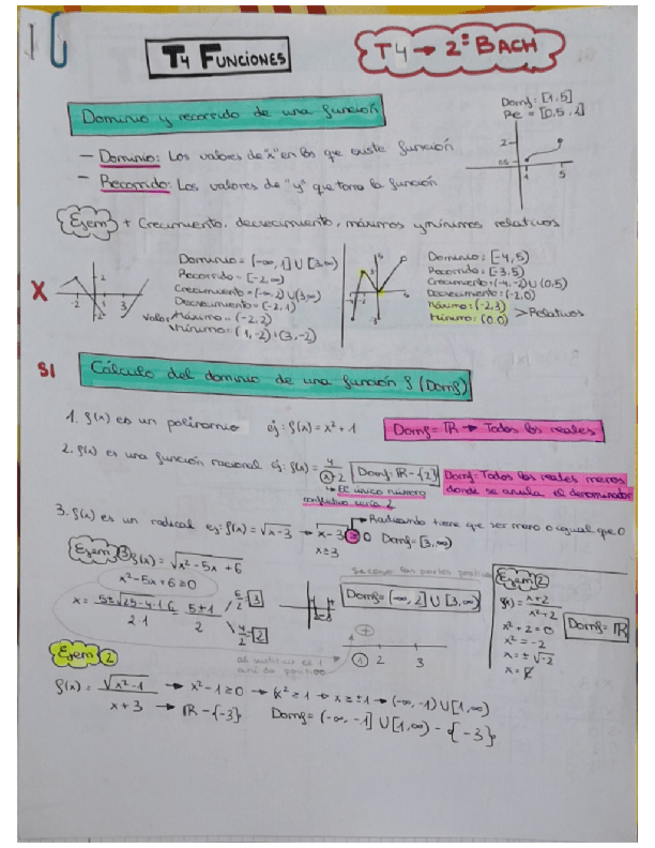 T4 FUNCIONES
T4 → 2º BACH
Dominio y recorrido de una función
Domf: [1,5]
Re = [0.5, 1]
– Dominio: Los valores de "x" en los que existe función
– Recorrido: Los valores de "y" que toma la función
2
0.5
1
5
Ejem + Crecimiento, decrecimiento, máximos y mínimos relativos
X
-2 1 3
2
-2
Dominio = (-∞, 1] ∪ [3, ∞)
Recorrido = [-2, ∞)
Crecimiento = (-∞, -2) ∪ (3, ∞)
Decrecimiento = (-2, 1)
Máximo = (-2, 2)
Mínimo = (1, -2) · (3, -2)
5
3
-3
Dominio: [-4, 5)
Recorrido: [-3, 5)
Crecimiento: (-4, -2) ∪ (0, 5)
Decrecimiento: (-2, 0)
Máximo: (-2, 3)
Mínimo: (0, 0) > Relativos
SI
Cálculo del dominio de una función f (Domf)
1. f(x) es un polinomio ej: f(x) = x² + 1 Domf = ℝ → Todos los reales
2. f(x) es una función racional ej: f(x) = 4/(x-2) Domf: ℝ - {2} Domf: Todos los reales menos
donde se anula el denominador
→ El único número
conflictivo sería 2
3. f(x) es un radical ej: f(x) = √x-3 → x - 3 ≥ 0 → Radicando tiene que ser mayor o igual que 0
x ≥ 3 Domf = [3, ∞)
Ejem ③ f(x) = √x² - 5x + 6
x² - 5x + 6 ≥ 0
x = 5±√25-4·1·6 / 2·1 = 5±1 / 2
6/2 = 3
4/2 = 2
Se cogen las partes positivas
Domf = (-∞, 2] ∪ [3, ∞)
+
1
① 2 3
Al sustituir es 1
Ejem 2
f(x) = x+2 / x²+2
x² + 2 = 0
x² = -2
x = ± √-2
Domf = ℝ
Ejem 2
f(x) = √x² - 1 → x² - 1 ≥ 0 → x² ≥ 1 → x ≥ ±1 → (-∞, -1) ∪ [1, ∞)
x + 3 → ℝ - {-3} Domf = (-∞, -1] ∪ [1, ∞) - {-3}